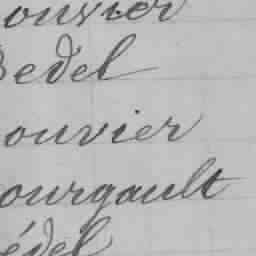 ouvier
Bedel
ouvier
ourgault
édel